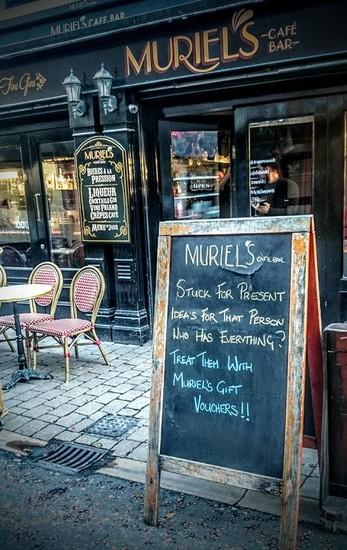 MURIEL'S CAFÉ BAR
MURIEL'S
-CAFÉ
BAR-
Fine Gins
MURIEL'S
BIÈRES À LA
PRESSION
LIQUEUR
COCKTAILS GIN
CRÊPES CAFÉ
MENU DU JOUR
OPEN
MURIEL'S CAFE BAR
STUCK FOR PRESENT
IDEA'S FOR THAT PERSON
WHO HAS EVERYTHING?
TREAT THEM WITH
MURIEL'S GIFT
VOUCHERS!!